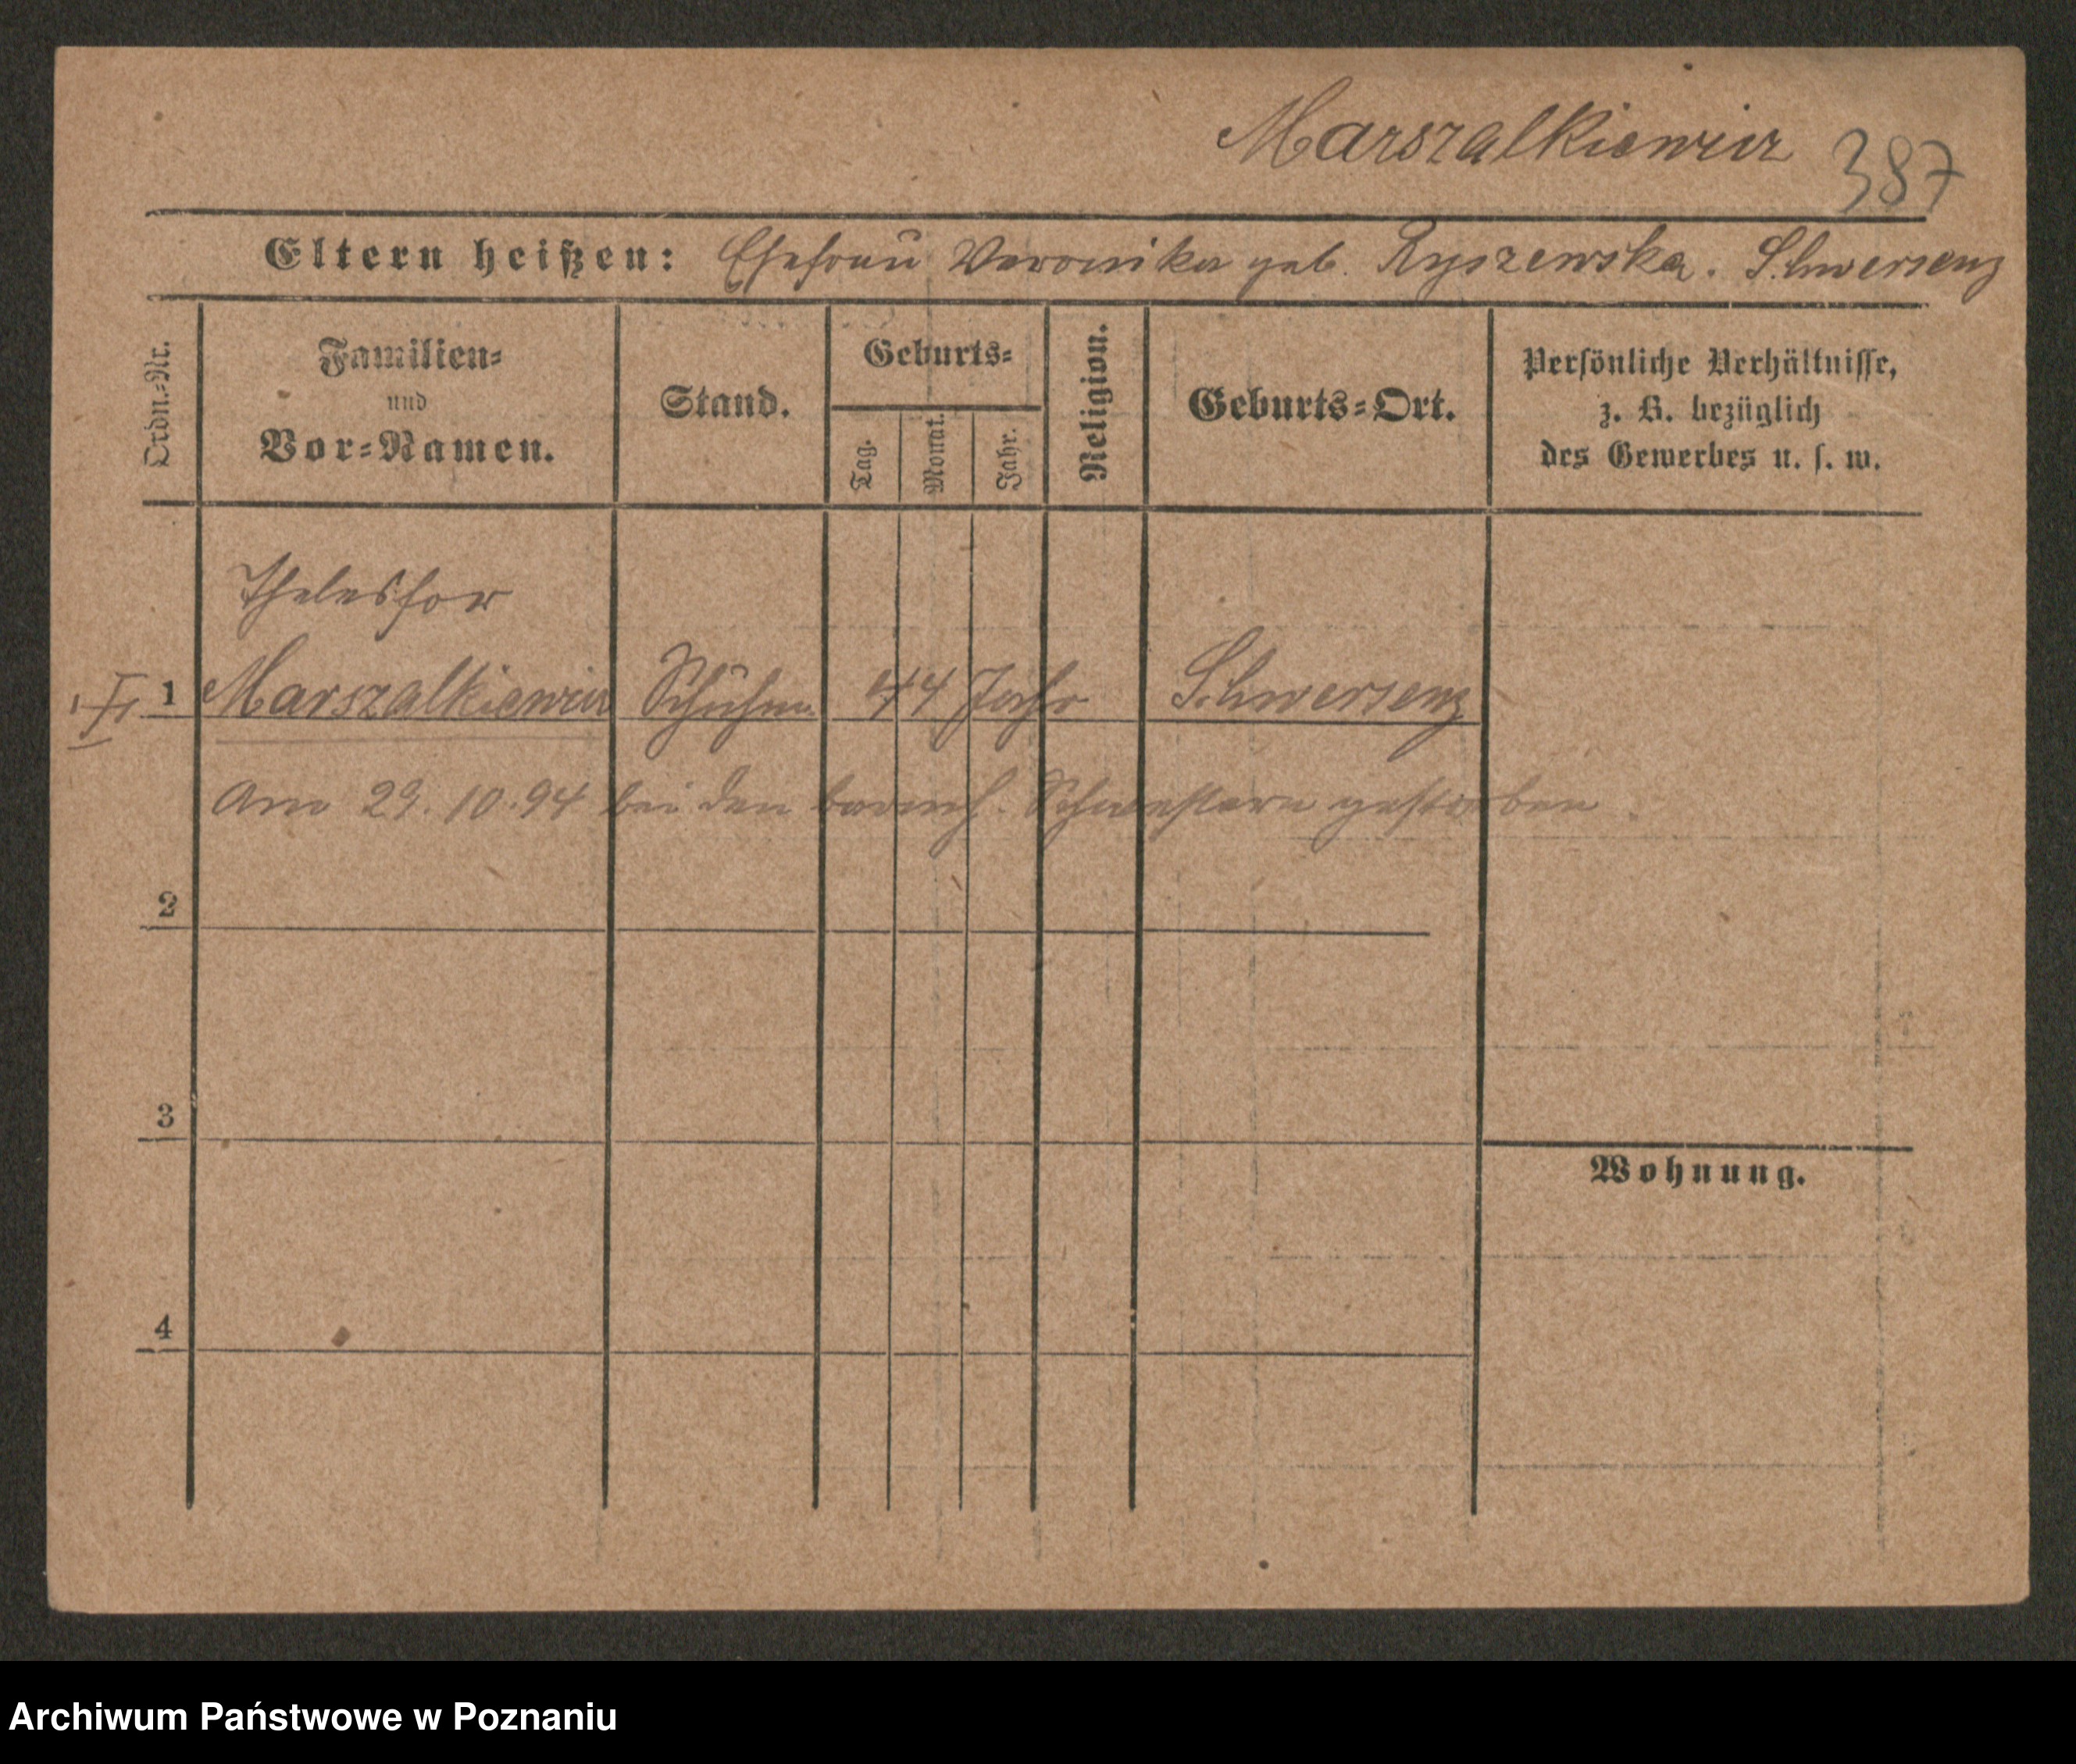 Marszalkiewicz 387
Eltern heißen: Ehefrau Veronika geb. Ryszewska. Schwersenz
Ordn.-Nr.
Familien-
und
Vor-Namen.
Stand.
Geburts-
Tag.
Monat.
Jahr.
Religion.
Geburts-Ort.
Persönliche Verhältnisse,
z. B. bezüglich
des Gewerbes u. s. w.
Thelesfor
1 Marszalkiewicz Schuhm. 44 Jahr Schwersenz
Am 29.10.94 bei den barmh. Schwestern gestorben.
2
3
Wohnung.
4
Archiwum Państwowe w Poznaniu